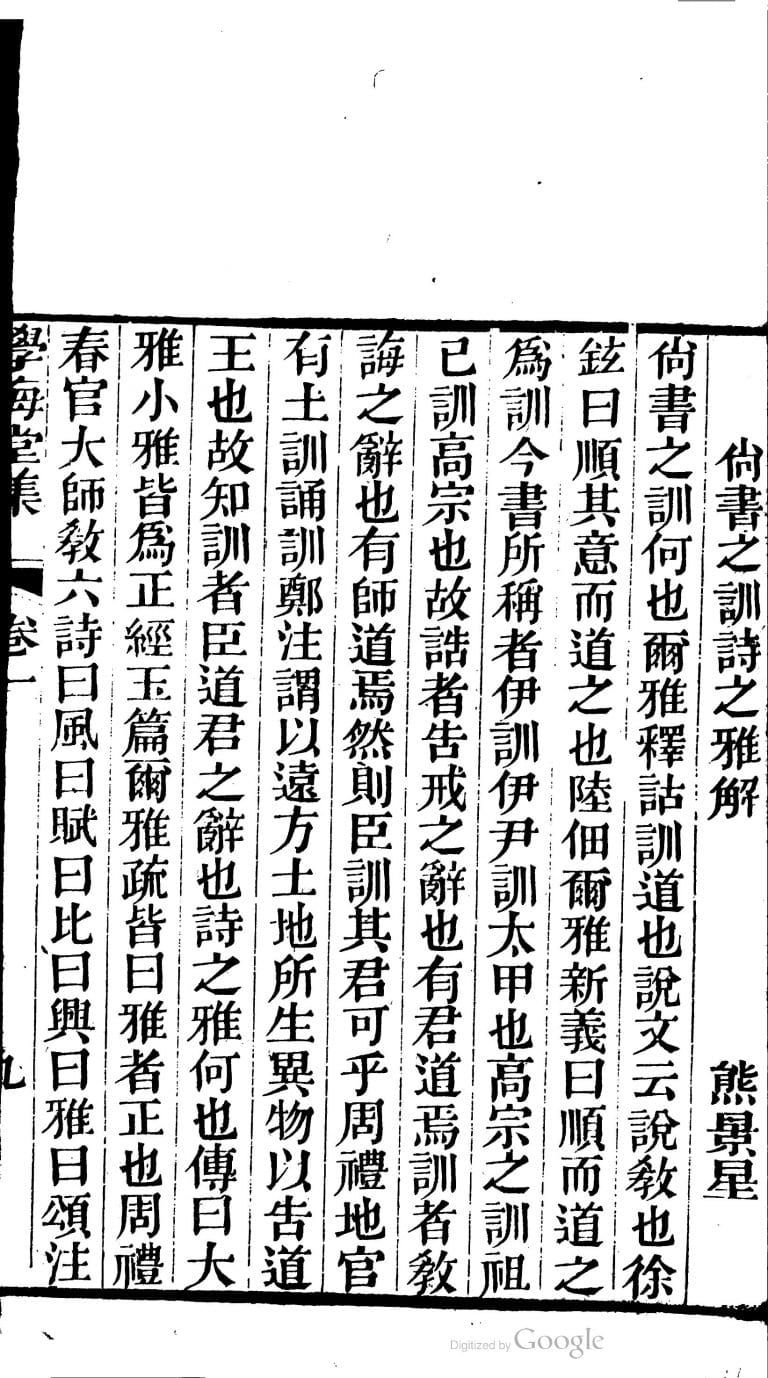 尙書之訓詩之雅解 熊景星
尙書之訓何也爾雅釋詁訓道也說文云說敎也徐
鉉曰順其意而道之也陸佃爾雅新義曰順而道之
爲訓今書所稱者伊訓伊尹訓太甲也高宗之訓祖
己訓高宗也故誥者告戒之辭也有君道焉訓者敎
誨之辭也有師道焉然則臣訓其君可乎周禮地官
有土訓誦訓鄭注謂以遠方土地所生異物以告道
王也故知訓者臣道君之辭也詩之雅何也傳曰大
雅小雅皆爲正經玉篇爾雅疏皆曰雅者正也周禮
春官大師敎六詩曰風曰賦曰比曰興曰雅曰頌注
學海堂集 卷一 九
Digitized by Google